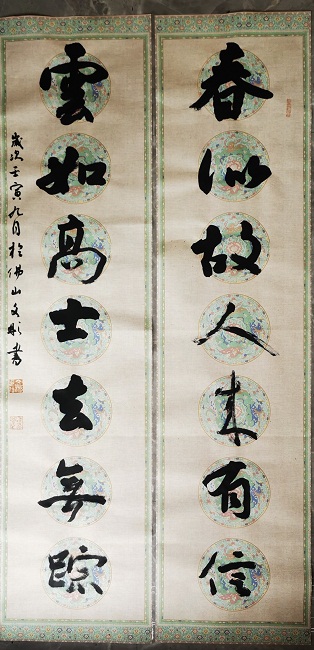 春似故人来有信
雲如高士去無踪
歲次壬寅九月於佛山文彬書